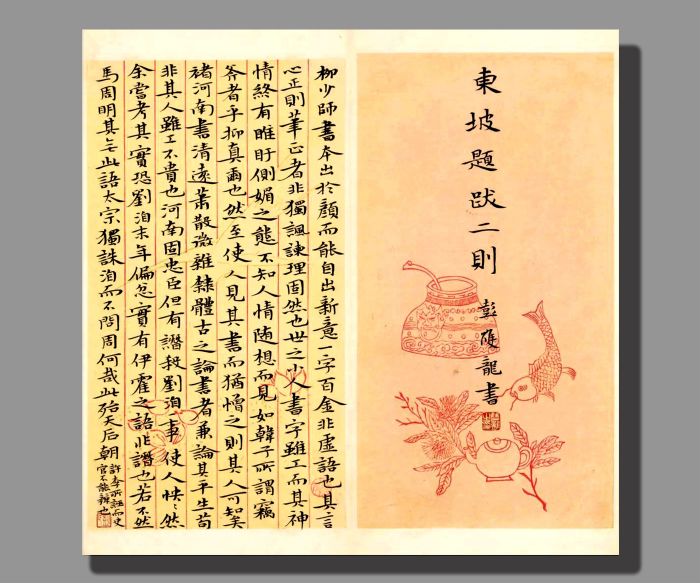 東坡題跋二則
龍書
柳少師書本出於顏而能自出新意一字百金非虛語也其言
心正則筆正者非獨諷諫理固然也世之小人書字雖工而其神
情終有睢盱側媚之態不知人情随想而見如韓子所謂竊
斧者乎抑真爾也然至使人見其書而猶憎之則其人可知矣
褚河南書清遠蕭散微雜隸體古之論書者兼論其平生苟
非其人雖工不貴也河南固忠臣但有譖殺劉洎事使人怏〻然
余嘗考其實恐劉洎末年偏忿實有伊霍之語非譖也若不然
馬周明其无此語太宗獨誅洎而不問周何哉此殆天后朝
許李所誣而史
官不能辨也